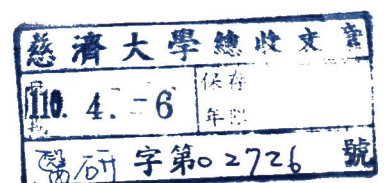 慈濟大學總收文章
日期 110. 4. -6 保存年限
醫研 字第02726 號